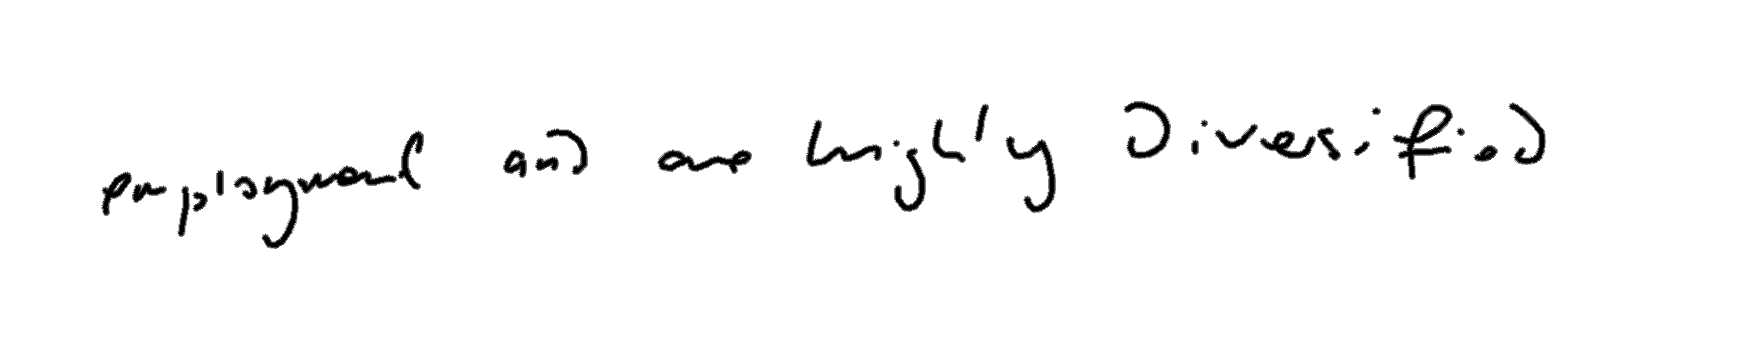 employment and are highly Diversified